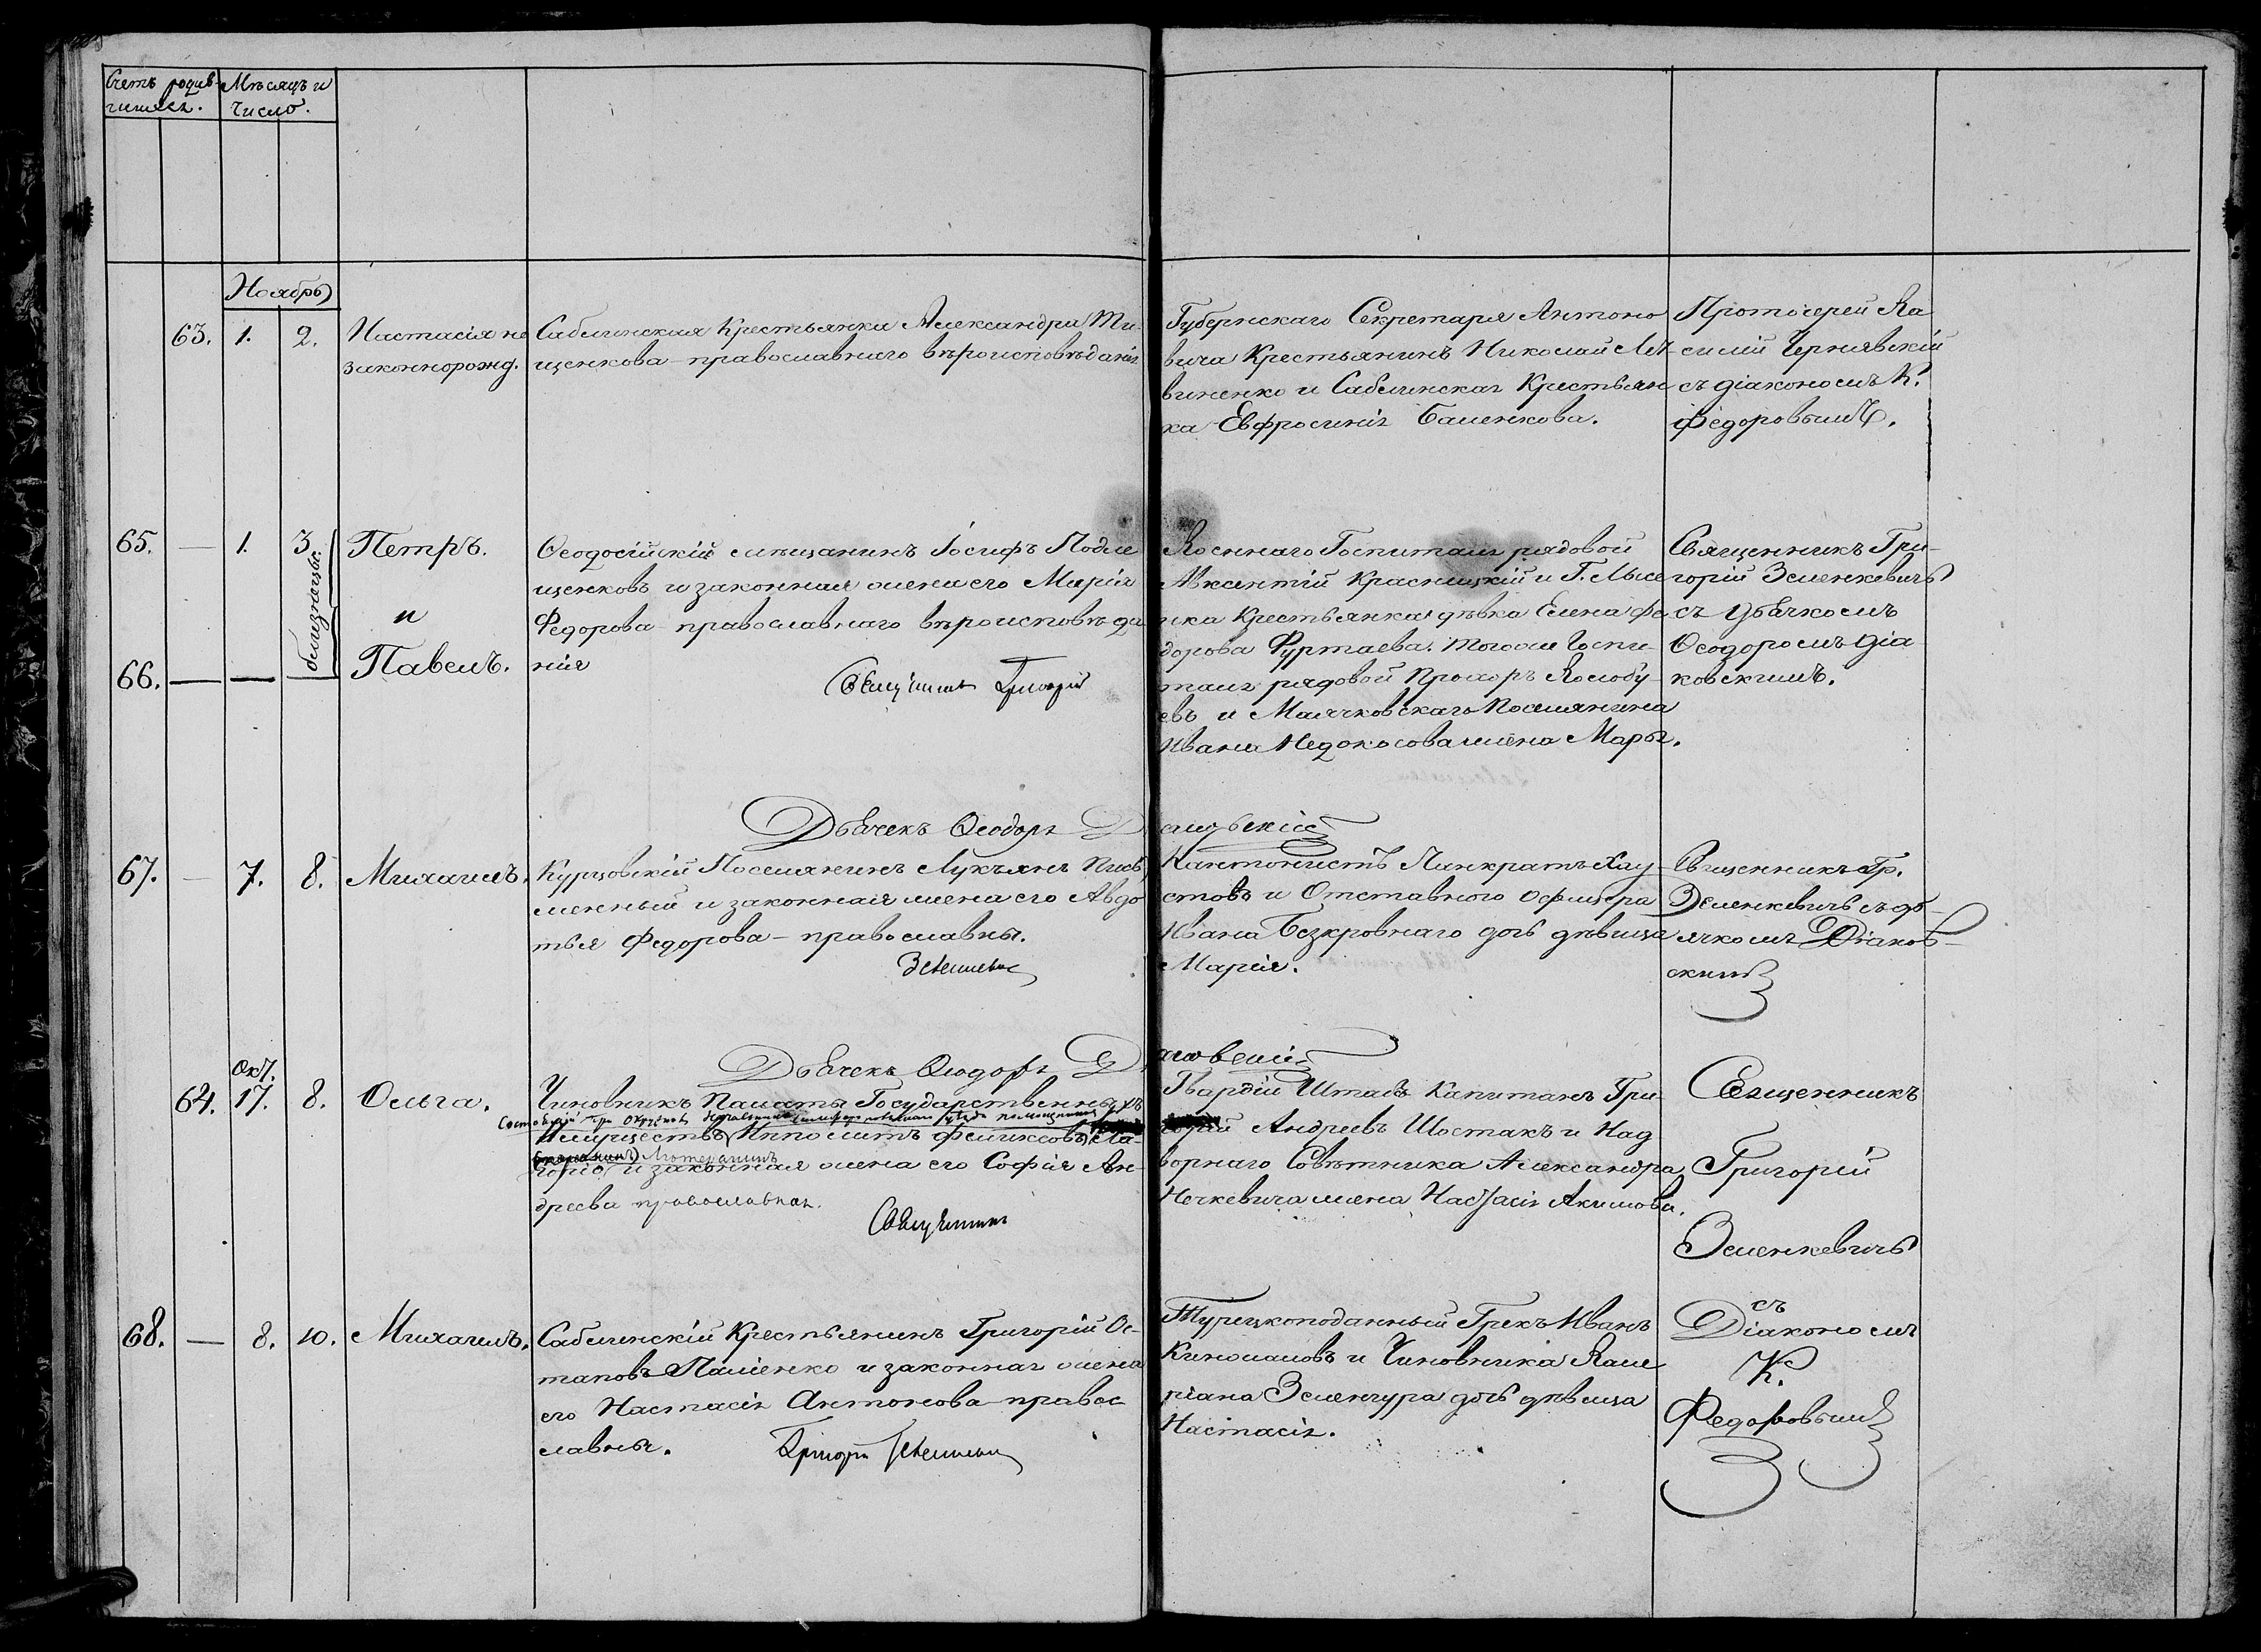 Счетъ родив-
шихся.
Мѣсяцъ и
число.
Ноябрь
63. 1. 2. Настасія не
законнорожд.
Саблинская Крестьянка Александра Ти-
щенкова православнаго вѣроисповѣданія.
Губернскаго Секретаря Антоно
вича Крестьянинъ Николай Лит
виненко и Саблинская Крестьян
ка Евфросинія Баленкова.
Протоіерей Ва
силій Чернявскій
съ діакономъ К.
Федоровымъ.
65. — 1. 3. Петръ.
близнецы.
и
66. — — — Павелъ.
Ѳеодосійскій мѣщанинъ Іосифъ Подле
щенковъ и законная жена его Марія
Федорова православнаго вѣроисповѣда
нія
Священникъ Григорій
Военнаго Госпиталя рядовой
Авксентій Красницкій и Г.
крестьянка дѣвка Елена Фе
дорова Фуртаева. Тогоже Госпи-
таля рядовой Прохоръ
евъ и Маячковскаго Поселянина
Ивана Недокосова жена Марѳа.
Священникъ Гри-
горій Зеленкевичъ
съ дьячкомъ
Ѳеодоромъ Діа
ковскимъ.
Дьячекъ Ѳеодоръ Діаковскій
67. — 7. 8. Михаилъ.
Курцовскій Поселянинъ Лукъянъ Пись
менный и законная жена его Авдо
тья Федорова — православны.
Зеленкевичъ
Кантонистъ Панкратъ Хау-
стовъ и Отставного Офицера
Ивана Безкровнаго дочь дѣвица
Марія.
Священникъ Гр.
Зеленкевичъ съ дь-
ячкомъ Діаков-
скимъ
Дьячекъ Ѳеодоръ Діаковскій
Окт.
64. 17. 8. Ольга.
Чиновникъ Палаты Государственныхъ
Состоящій при Окружномъ
Имуществъ Ипполитъ Феликсовъ Ла-
Лютеранинъ
горіо и законная жена его Софія Ан-
дреева православная.
Священникъ
Гвардіи Штабъ Капитанъ Гри-
горій Андреевъ Шостакъ и Над
ворнаго Совѣтника Александра
Нечкевича жена Настасія Акимова.
Священникъ
Григорій
Зеленкевичъ
съ
Діакономъ
К.
Федоровымъ
68. — 8. 10. Михаилъ.
Саблинскій Крестьянинъ Григорій Ос-
таповъ Паліенко и законная жена
его Настасія Антонова — правос
лавны.
Григорій Зеленкевичъ
Турецкоподанный Грекъ Иванъ
Киномановъ и Чиновника Вале
ріана Зеленгура дочь дѣвица
Настасія.